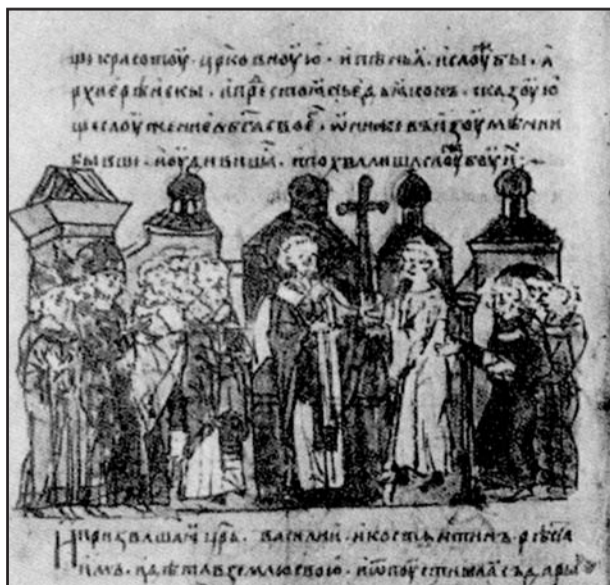 щи красотоу · црковноую · и пѣньꙗ · и слоуⷤбы · а
рхиерѣискы · и прⷭ҇тоꙗнье дьꙗконъ · сказоую
ще слоужение б҃а своег҃ · ѡни же въ изоумѣнии
бывши · и оудивишаⷭ · и похвалиша слоуⷤбоу иⷯ :
И призваша иⷯ цр҃ѧ · василии · и костѧнтинъ · рѣста
имъ · идѣта в землю свою · и ѿпоустиша ѧ съ дары